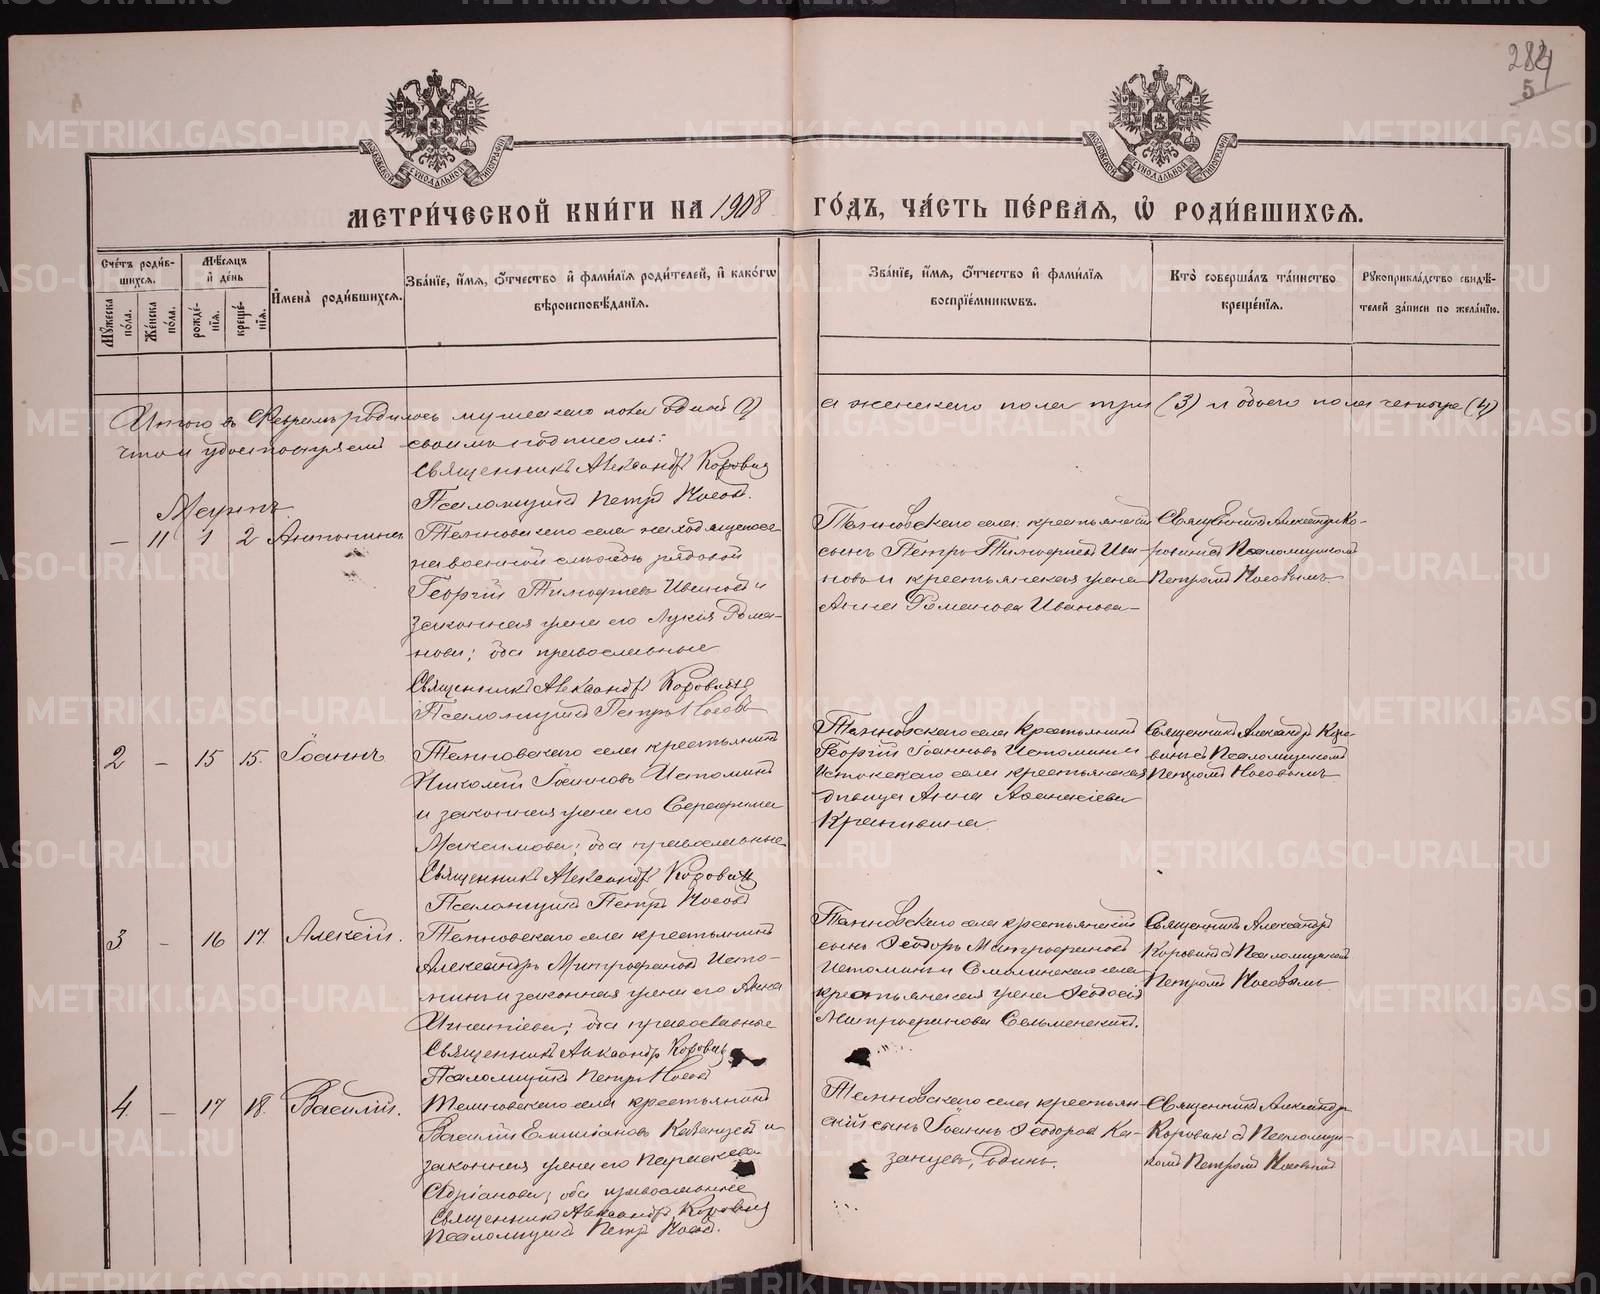 284
5
МОСКОВСКОЙ СѴНОДАЛЬНОЙ ТИПОГРАФІИ
МОСКОВСКОЙ СѴНОДАЛЬНОЙ ТИПОГРАФІИ
МЕТРИ́ЧЕСКОЙ КНИ́ГИ НА 1908
ГО́ДЪ, ЧА́СТЬ ПЕ́РВАЯ, Ѡ РОДИ́ВШИХСЯ.
Сче́тъ роди́в-
шихся.
Мѣ́сяцъ
и де́нь
Мꙋ́жеска по́ла.
Же́нска по́ла.
рожде́-
нія.
креще́-
нія.
И҆мена̀ роди́вшихся.
Зва́нїе, и҆́мя, ѻ҆́тчество и҆ фами́лїя роди́телей, и҆ како́гѡ
вѣроисповѣ́данїя.
Зва́нїе, и҆́мя, ѻ҆́тчество и҆ фами́лїя
воспрїе́мникѡвъ.
Кто̀ соверша́лъ та́инство
креще́нїя.
Рꙋкоприкла́дство свидѣ́-
телей за́писи по жела́нїю.
Итого въ Февралѣ родилось мужескаго пола одной (1)
а женскаго пола три (3) и обоего пола четыре (4)
что и удостовѣряемъ своимъ подписомъ:
Священникъ Александръ Коровинъ
Псаломщикъ Петръ Носовъ.
Мартъ.
— 11 1 2 Антонина
Темновскаго села находящегося
на военной службѣ рядовой
Георгій Тимофѣевъ Ивановъ и
законная жена его Лукія Рома-
нова; оба православные
Священникъ Александръ Коровинъ
Псаломщикъ Петръ Носовъ
села крестьянскій
сынъ Петръ Тимофѣевъ Ива-
новъ и крестьянская жена
Анна Романова Иванова—
Священникъ Александръ Ко-
ровинъ съ Псаломщикомъ
Петромъ Носовымъ
2 — 15 15. Іоаннъ
села крестьянинъ
Николай Іоанновъ Истоминъ
и законная жена его Серафима
Максимова; оба православные
Священникъ Александръ Коровинъ
Псаломщикъ Петръ Носовъ
села крестьянинъ
Георгій Іоанновъ Истоминъ и
Истокскаго села крестьянская
дѣвица Анна Аѳанасіева
Крапивина.
Священникъ Александръ Коро-
винъ съ Псаломщикомъ
Петромъ Носовымъ
3 — 16 17. Алексій.
села крестьянинъ
Александръ Митрофановъ Исто-
минъ и законная жена его Анна
Игнатіева; оба православные
Священникъ Александръ Коровинъ
Псаломщикъ Петръ Носовъ
села крестьянскій
сынъ Ѳеодоръ Митрофановъ
Истоминъ и Смолинскаго села
крестьянская жена Ѳеодосія
Митрофанова
Священникъ Александръ
Коровинъ съ Псаломщикомъ
Петромъ Носовымъ
4. — 17 18. Василій.
села крестьянинъ
Василій Емиліановъ Казанцевъ и
законная жена его Параскева
Адріанова; оба православные
Священникъ Александръ Коровинъ
Псаломщикъ Петръ Носовъ.
села крестьян-
скій сынъ Іоаннъ Ѳеодоровъ Ка-
занцевъ, одинъ.
Священникъ Александръ
Коровинъ съ Псаломщи-
комъ Петромъ Носовымъ
METRIKI.GASO-URAL.RU